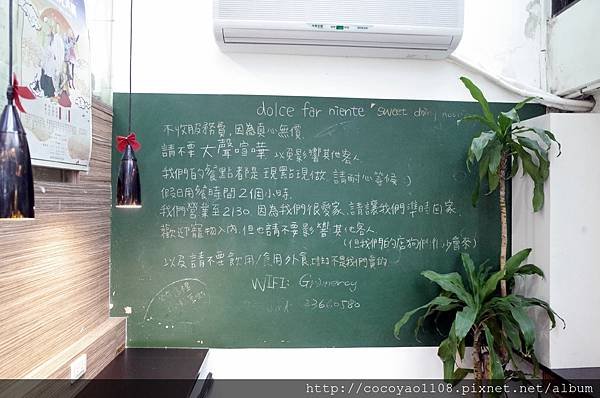 dolce far niente "sweet doing
不收服務費,因為真心無價
請不要 大聲喧嘩 以免影響其他客人
我們的餐點都是現點現做 請耐心等候 :)
假日用餐時間2個小時
我們營業至21:30, 因為我們很愛家、請讓我們準時回家
歡迎寵物入內,但也請不要影響其他客人
(但我們的店狗們
以及請不要飲用/食用外食
不是我們賣的
WIFI:
23660580
http://cocoyao1108.pixnet.net/album